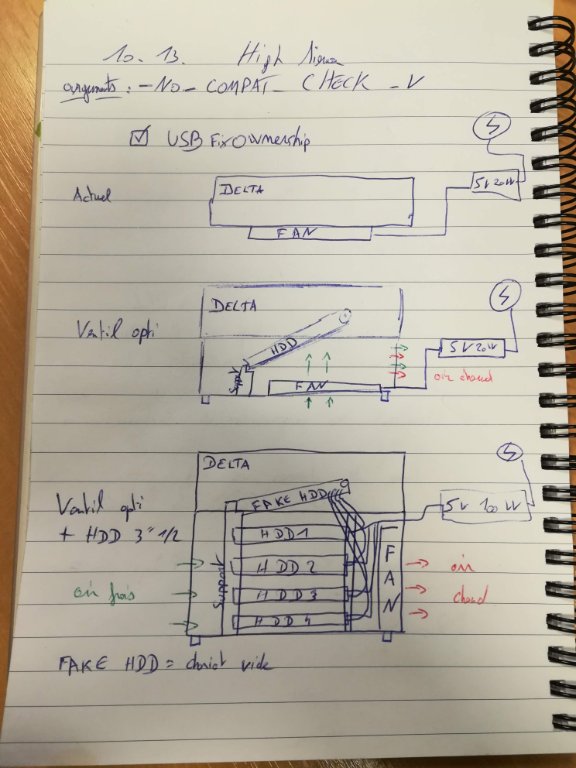 10.13. High Sierra
arguments : -No_COMPAT_CHECK -V
USB FixOwnership
Actuel
DELTA
FAN
5V 20W
Ventil opti
DELTA
HDD
FAN
5V 20W
air chaud
Ventil opti
+ HDD 3"1/2
DELTA
FAKE HDD
HDD1
HDD2
HDD3
HDD4
Support
FAN
5V 100W
air frais
air
chaud
FAKE HDD = chariot vide